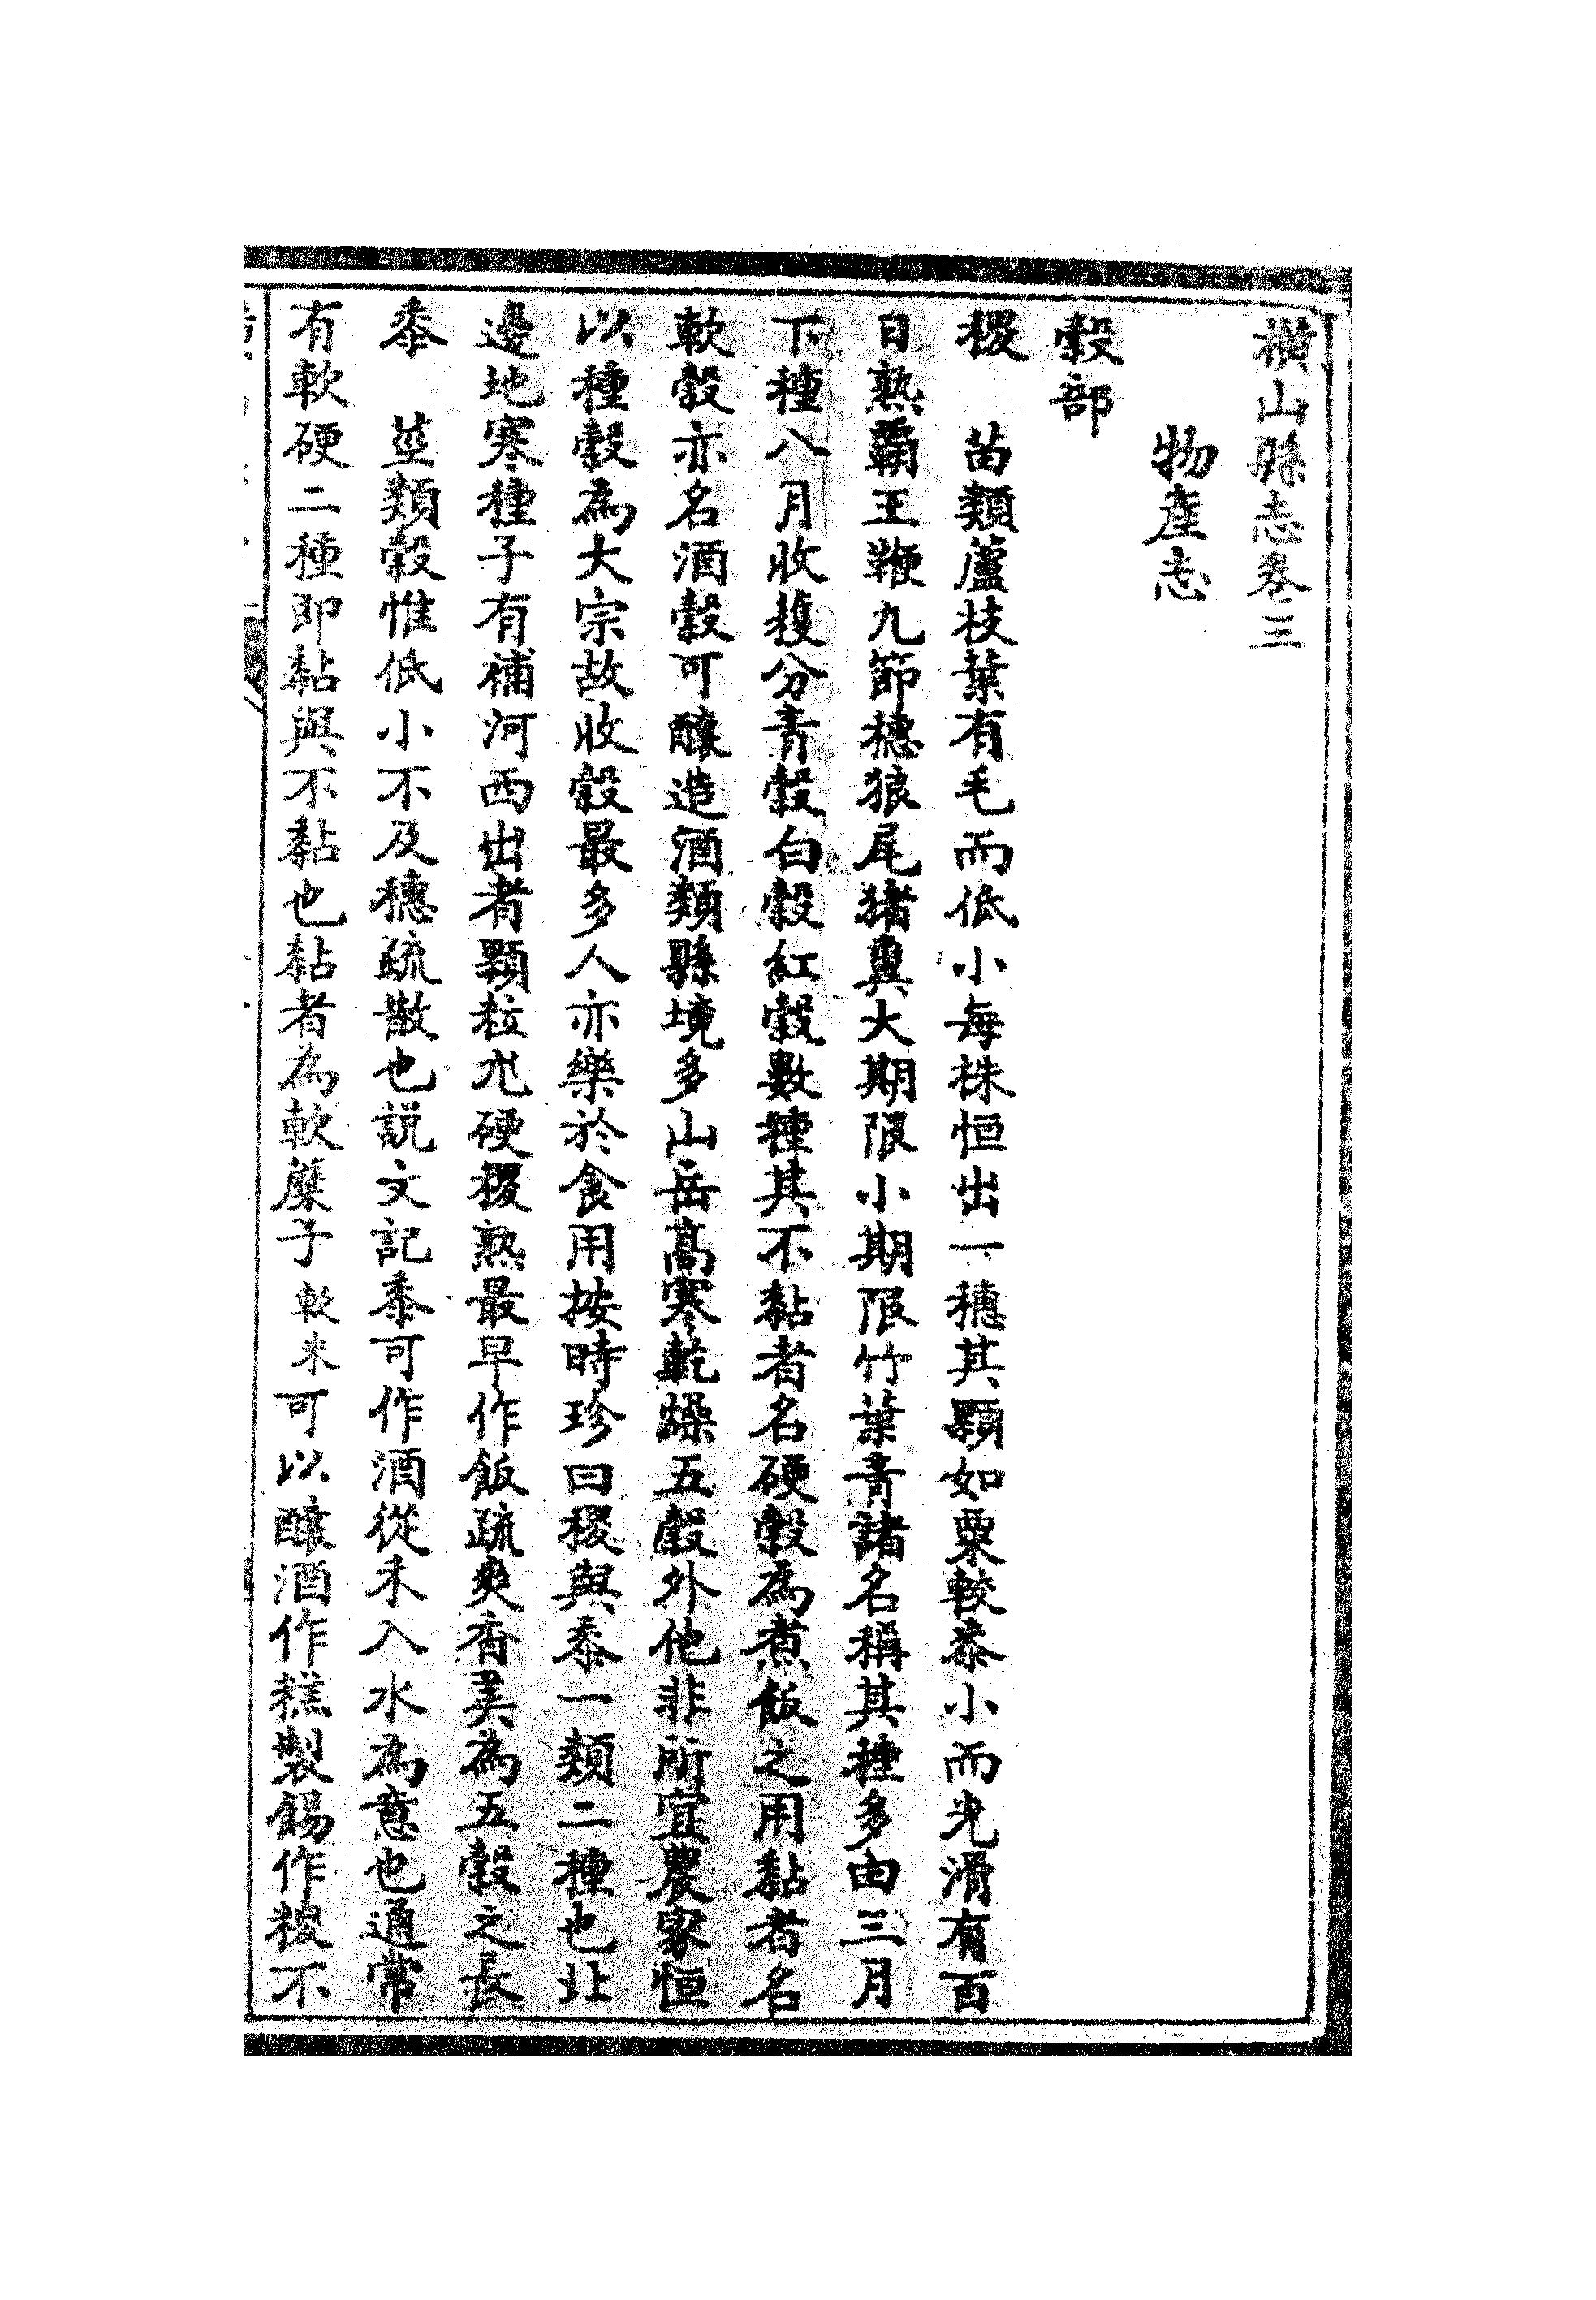 橫山縣志卷三
物産志
穀部
稷　苗類蘆枝葉有毛而低小每株恒出一穗其顆如粟較黍小而光滑有百
日熟霸王鞭九節穗狼尾猪糞大期限小期限竹葉青諸名稱其種多由三月
下種八月收穫分青穀白穀紅穀數種其不黏者名硬穀為煮飯之用黏者名
軟穀亦名酒穀可釀造酒類縣境多山岳高寒乾燥五穀外他非所宜農家恒
以種穀為大宗故收穀最多人亦樂於食用按時珍曰稷與黍一類二種也北
邊地寒種子有補河西出者顆粒尤硬稷熟最早作飯疏爽香美為五穀之長
黍　莖類穀惟低小不及穗疏散也説文記黍可作酒從禾入水為意也通常
有軟硬二種即黏與不黏也黏者為軟糜子軟米可以釀酒作糕製餳作𥻦不